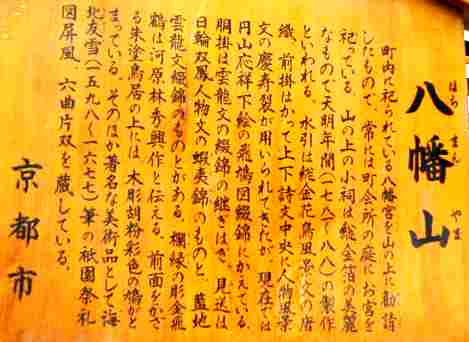 八幡山
はちまんやま
町内に祀られている八幡宮を山の上に勧請
したもので、常には町会所の庭にお宮を
祀っている。山の上の小祠は総金箔の美麗
なもので天明年間(一七八一〜八八)の製作
といわれる。水引は総金花鳥風景文の唐
織、前掛はかつて上下詩文中央に人物風景
文の慶寿裂が用いられてきたが、現在では
円山応祥下絵の飛鳩図綴錦にかえている。
胴掛は雲龍文の綴錦の継ぎはぎ、見送は
日輪双鳳人物文の蝦夷錦のものと、藍地
雲龍文綴錦のものとがある。欄縁の彫金飛
鶴は河原林秀興作と伝える。前面をかざ
る朱塗鳥居の上には、木彫胡粉彩色の鳩がと
まっている。そのほか著名な美術品として海
北友雪(一五九八〜一六七七)筆の祇園祭礼
図屏風、六曲片双を蔵している。
京都市